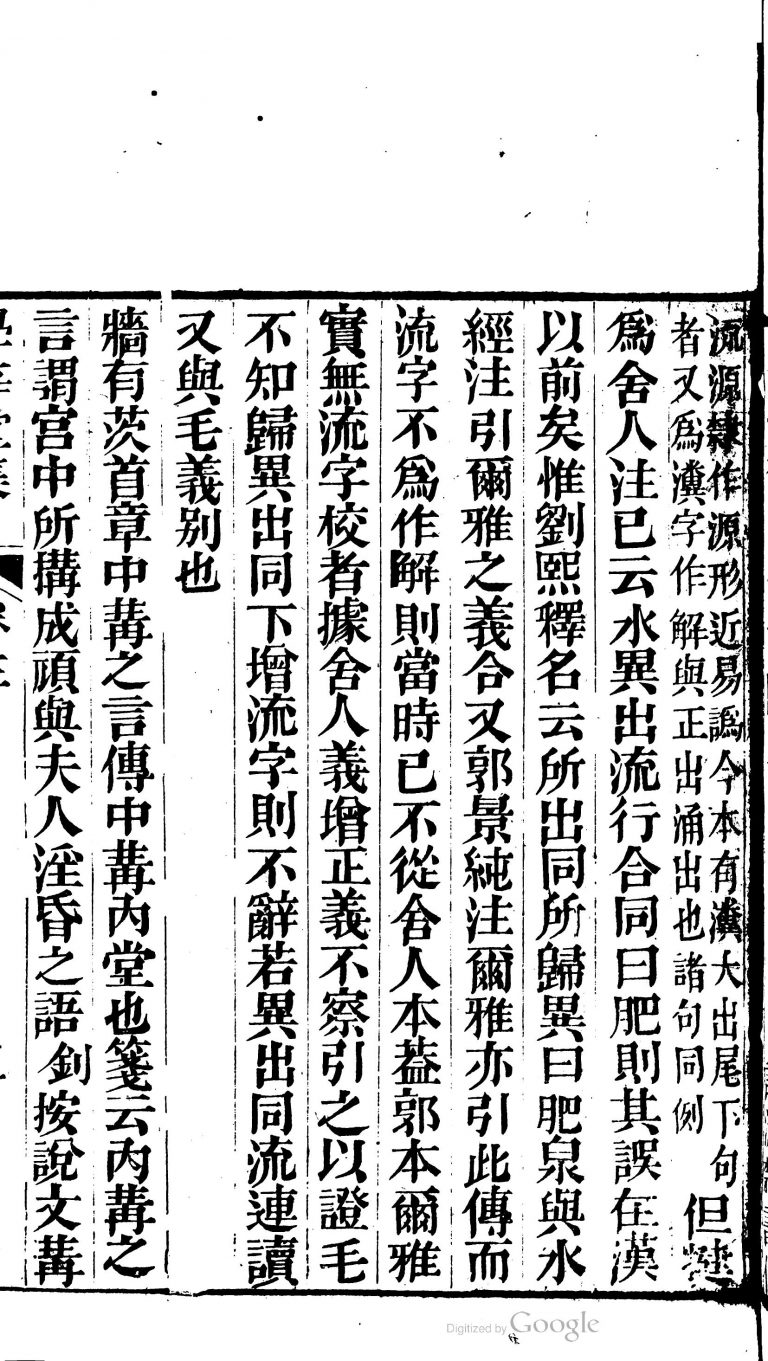 流源隸作源形近易譌今本有瀵大出尾下句
者又爲瀵字作解與正出涌出也諸句同例
但犍
爲舍人注已云水異出流行合同曰肥則其誤在漢
以前矣惟劉熙釋名云所出同所歸異曰肥泉與水
經注引爾雅之義合又郭景純注爾雅亦引此傳而
流字不爲作解則當時已不從舍人本葢郭本爾雅
實無流字校者據舍人義增正義不察引之以證毛
不知歸異出同下增流字則不辭若異出同流連讀
又與毛義別也
牆有茨首章中冓之言傳中冓內堂也箋云內冓之
言謂宮中所搆成頑與夫人淫昏之語 釗按說文冓
Digitized by Google